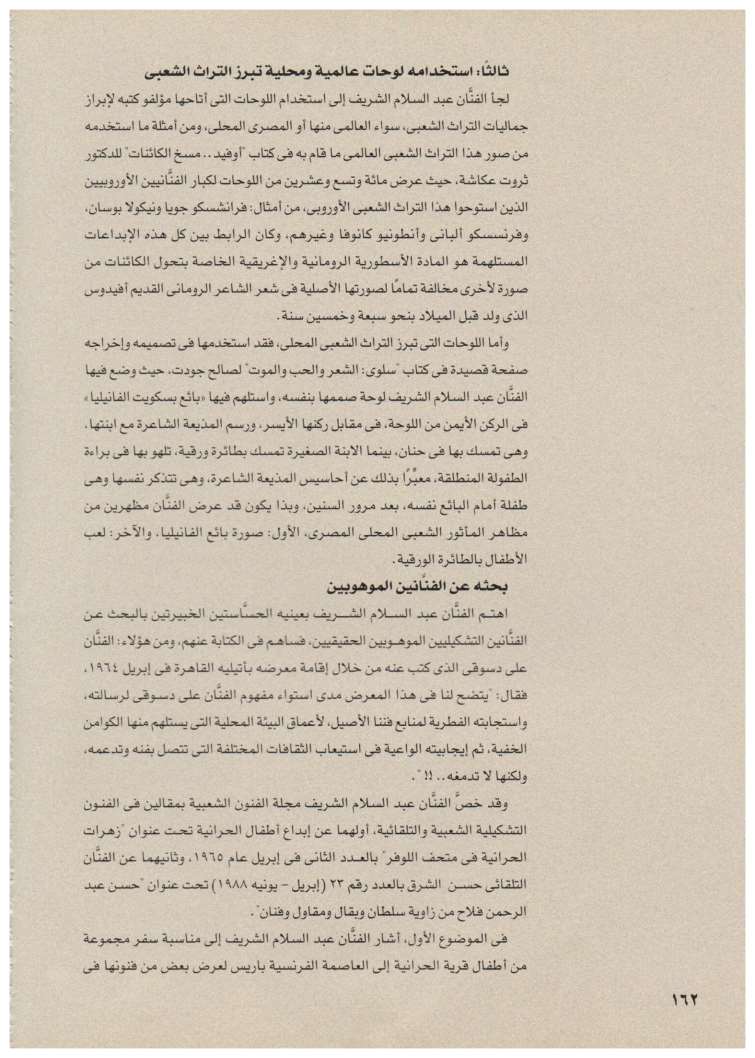 ثالثًا: استخدامه لوحات عالمية ومحلية تبرز التراث الشعبى
لجأ الفنَّان عبد السلام الشريف إلى استخدام اللوحات التى أتاحها مؤلفو كتبه لإبراز
جماليات التراث الشعبى، سواء العالمى منها أو المصرى المحلى، ومن أمثلة ما استخدمه
من صور هذا التراث الشعبى العالمى ما قام به فى كتاب "أوفيد.. مسخ الكائنات" للدكتور
ثروت عكاشة، حيث عرض مائة وتسع وعشرين من اللوحات لكبار الفنَّانيين الأوروبيين
الذين استوحوا هذا التراث الشعبى الأوروبى، من أمثال: فرانشسكو جويا ونيكولا بوسان،
وفرنسسكو ألبانى وأنطونيو كانوفا وغيرهم، وكان الرابط بين كل هذه الإبداعات
المستلهمة هو المادة الأسطورية الرومانية والإغريقية الخاصة بتحول الكائنات من
صورة لأخرى مخالفة تمامًا لصورتها الأصلية فى شعر الشاعر الرومانى القديم أفيدوس
الذى ولد قبل الميلاد بنحو سبعة وخمسين سنة.
وأما اللوحات التى تبرز التراث الشعبى المحلى، فقد استخدمها فى تصميمه وإخراجه
صفحة قصيدة فى كتاب "سلوى: الشعر والحب والموت" لصالح جودت، حيث وضع فيها
الفنَّان عبد السلام الشريف لوحة صممها بنفسه، واستلهم فيها «بائع بسكويت الفانيليا»
فى الركن الأيمن من اللوحة، فى مقابل ركنها الأيسر، ورسم المذيعة الشاعرة مع ابنتها،
وهى تمسك بها فى حنان، بينما الابنة الصغيرة تمسك بطائرة ورقية، تلهو بها فى براءة
الطفولة المنطلقة، معبِّرًا بذلك عن أحاسيس المذيعة الشاعرة، وهى تتذكر نفسها وهى
طفلة أمام البائع نفسه، بعد مرور السنين، وبذا يكون قد عرض الفنَّان مظهرين من
مظاهر المأثور الشعبى المحلى المصرى، الأول: صورة بائع الفانيليا، والآخر: لعب
الأطفال بالطائرة الورقية.
بحثه عن الفنَّانين الموهوبين
اهتم الفنَّان عبد السلام الشريف بعينيه الحسَّاستين الخبيرتين بالبحث عن
الفنَّانين التشكيليين الموهوبين الحقيقيين، فساهم فى الكتابة عنهم، ومن هؤلاء: الفنَّان
على دسوقى الذى كتب عنه من خلال إقامة معرضه بأتيليه القاهرة فى إبريل ١٩٦٤،
فقال: "يتضح لنا فى هذا المعرض مدى استواء مفهوم الفنَّان على دسوقى لرسالته،
واستجابته الفطرية لمنابع فننا الأصيل، لأعماق البيئة المحلية التى يستلهم منها الكوامن
الخفية، ثم إيجابيته الواعية فى استيعاب الثقافات المختلفة التى تتصل بفنه وتدعمه،
ولكنها لا تدمغه.. !! ".
وقد خصَّ الفنَّان عبد السلام الشريف مجلة الفنون الشعبية بمقالين فى الفنون
التشكيلية الشعبية والتلقائية، أولهما عن إبداع أطفال الحرانية تحت عنوان "زهرات
الحرانية فى متحف اللوفر" بالعدد الثانى فى إبريل عام ١٩٦٥، وثانيهما عن الفنَّان
التلقائى حسن الشرق بالعدد رقم ٢٣ (إبريل - يونيه ١٩٨٨) تحت عنوان "حسن عبد
الرحمن فلاح من زاوية سلطان وبقال ومقاول وفنان".
فى الموضوع الأول، أشار الفنَّان عبد السلام الشريف إلى مناسبة سفر مجموعة
من أطفال قرية الحرانية إلى العاصمة الفرنسية باريس لعرض بعض من فنونها فى
١٦٢